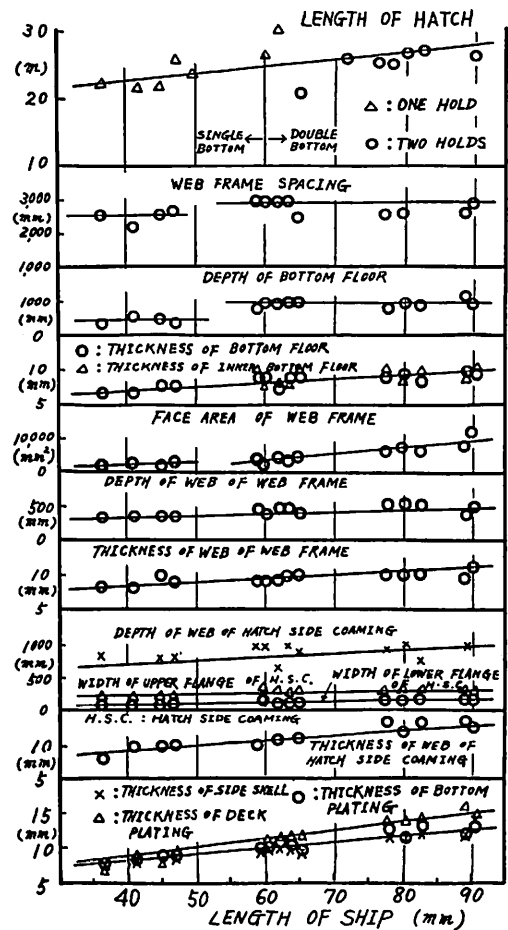 LENGTH OF HATCH
30
(m)
20
10
SINGLE BOTTOM
DOUBLE BOTTOM
△ : ONE HOLD
O : TWO HOLDS
WEB FRAME SPACING
3,000
(mm)
2,000
1,000
DEPTH OF BOTTOM FLOOR
1000
(mm)
0
O : THICKNESS OF BOTTOM FLOOR
△ : THICKNESS OF INNER BOTTOM FLOOR
10
(mm)
5
FACE AREA OF WEB FRAME
10000
(mm²)
0
DEPTH OF WEB OF WEB FRAME
500
(mm)
0
THICKNESS OF WEB OF WEB FRAME
10
(mm)
5
DEPTH OF WEB OF HATCH SIDE COAMING
1000
(mm)
500
0
WIDTH OF UPPER FLANGE OF H.S.C.
WIDTH OF LOWER FLANGE OF H.S.C.
H.S.C. : HATCH SIDE COAMING
10
5
THICKNESS OF WEB OF
HATCH SIDE COAMING
× : THICKNESS OF SIDE SHELL
O : THICKNESS OF BOTTOM PLATING
△ : THICKNESS OF DECK PLATING
15
(mm)
10
5
40 50 60 70 80 90
LENGTH OF SHIP (mm)